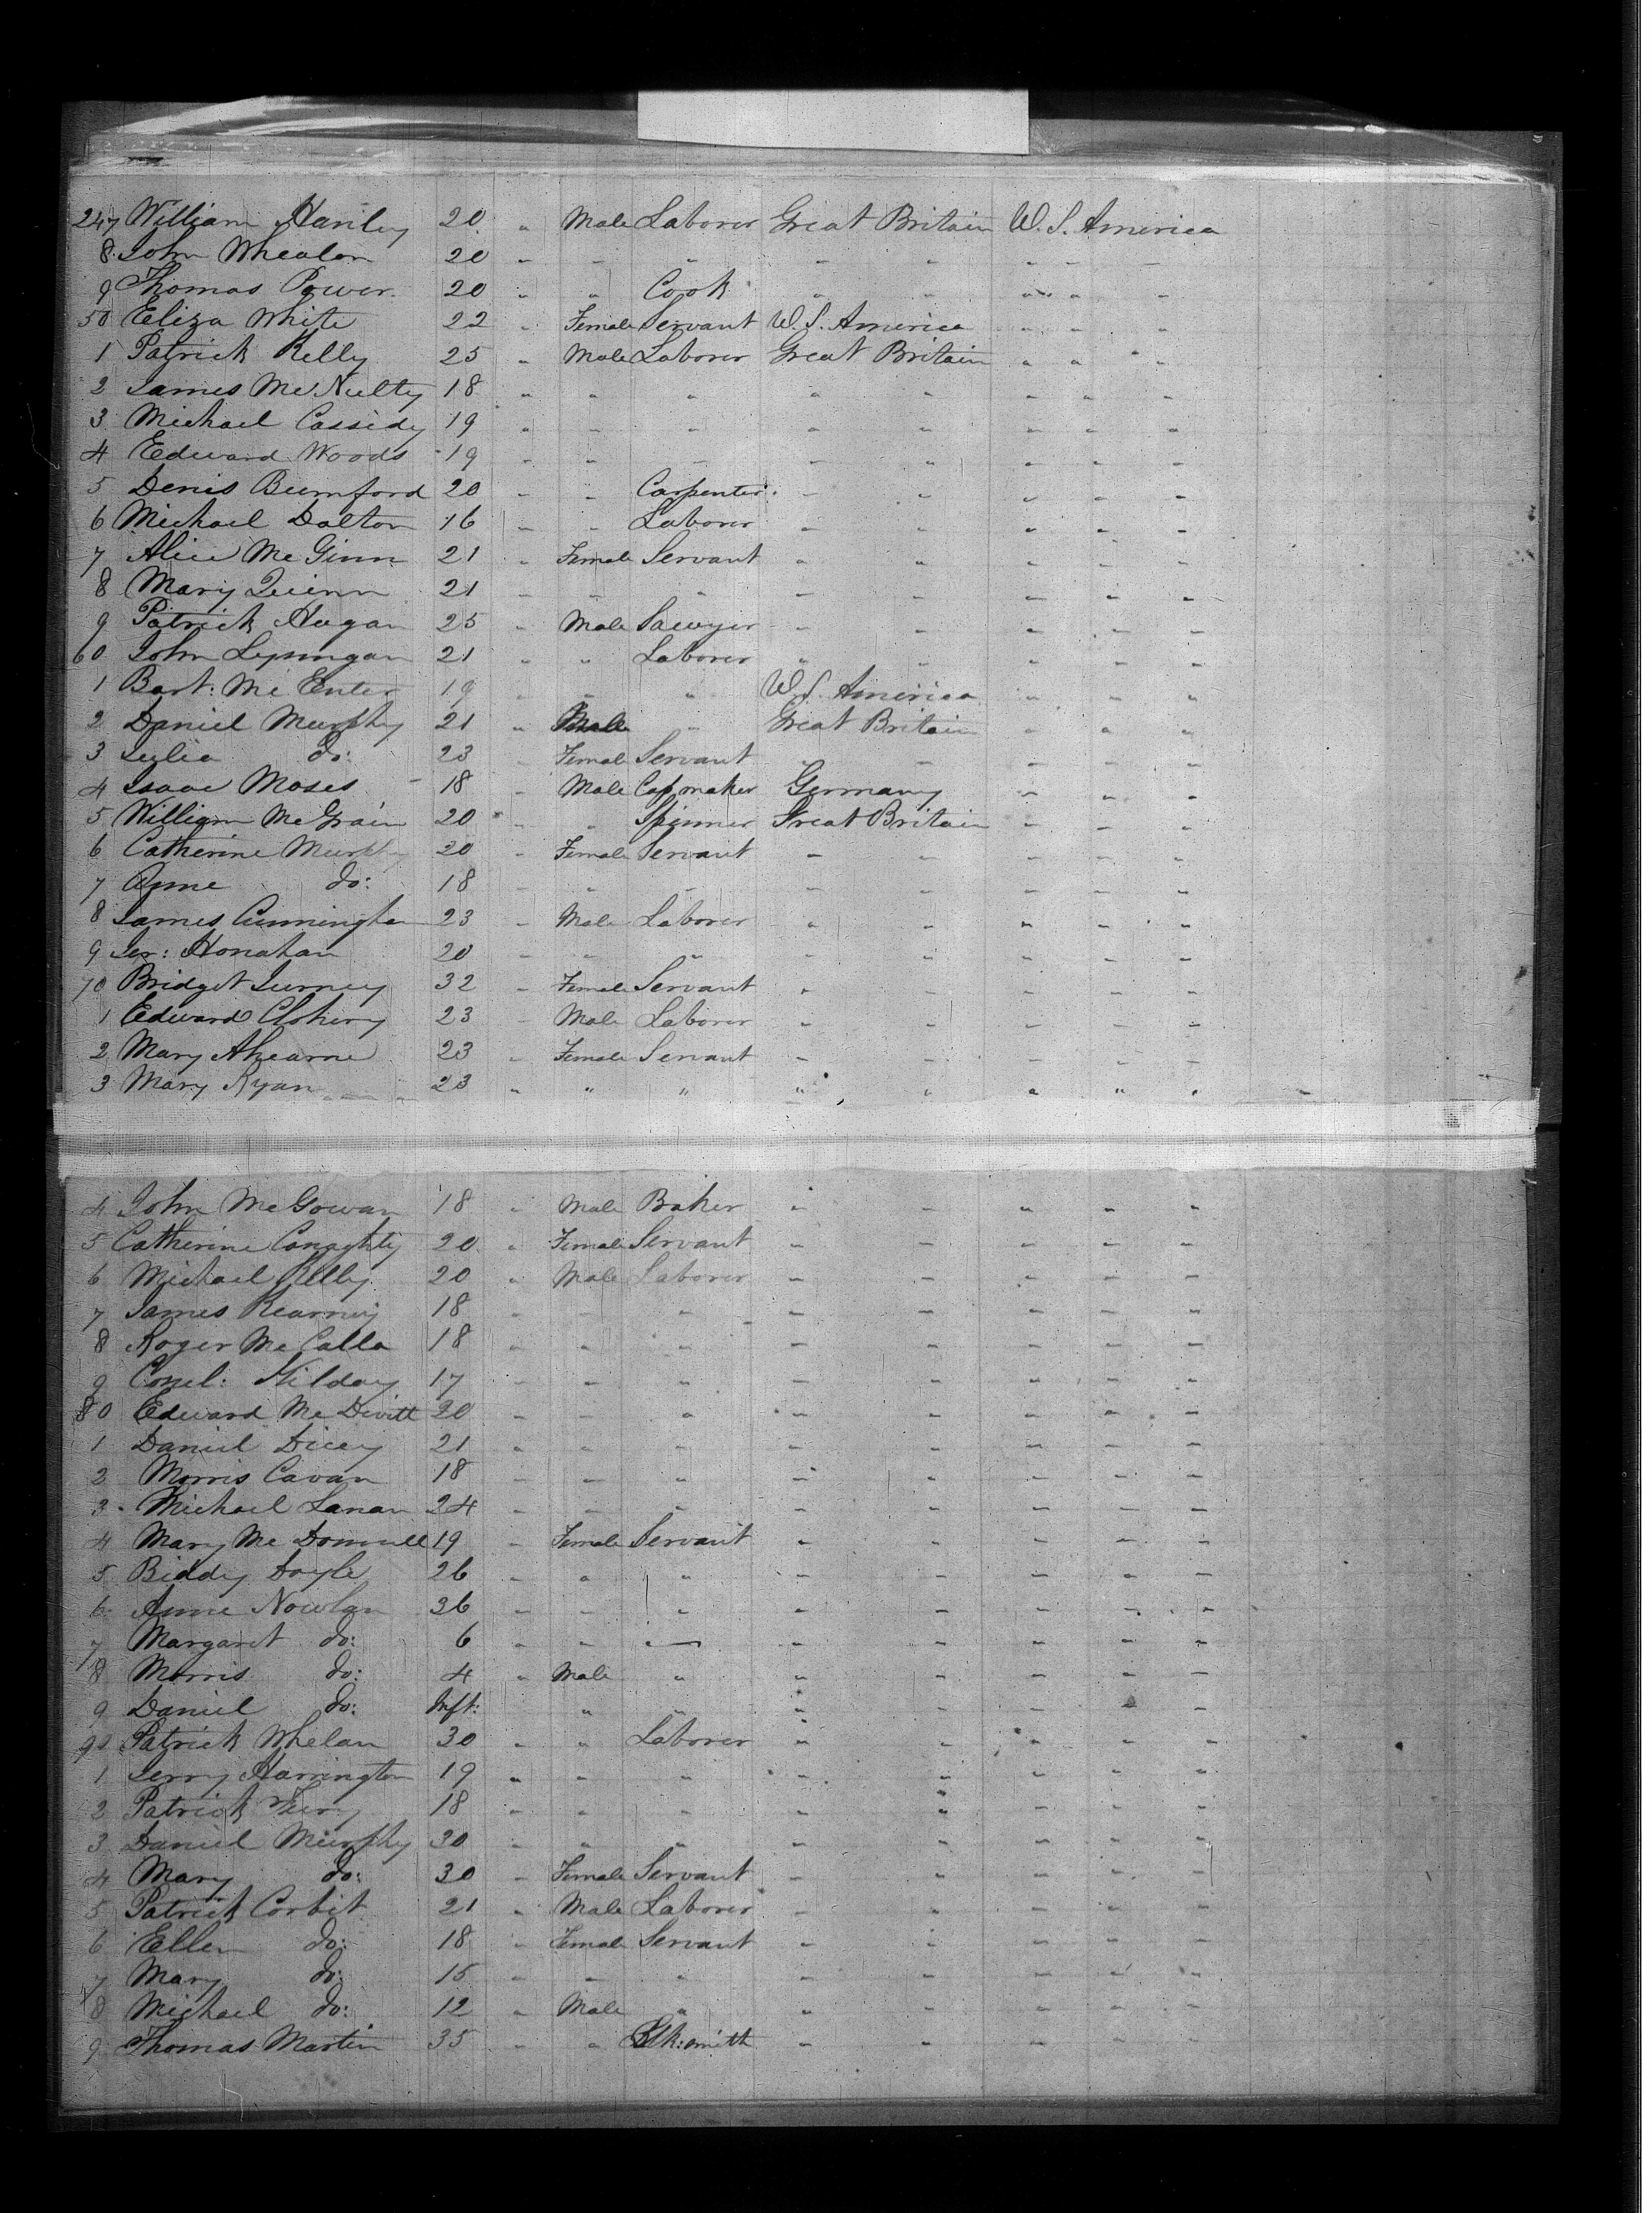 247 William Hanley 20 " Male Laborer Great Britain U. S. America
8 John Whealon 20 " " " " " " " "
9 Thomas Power 20 " " Cook " " " " "
50 Eliza White 22 " Female Servant U. S. America " " "
1 Patrick Kelly 25 " Male Laborer Great Britain " " "
2 James McNulty 18 " " " " " " " "
3 Michael Cassidy 19 " " " " " " " "
4 Edward Woods 19 " " " " " " " "
5 Denis Bumford 20 " " Carpenter " " " " "
6 Michael Dalton 16 " " Laborer " " " " "
7 Alice McGinn 21 " Female Servant " " " " "
8 Mary Quinn 21 " " " " " " " "
9 Patrick Hogan 25 " Male Sawyer " " " " "
60 John 21 " " Laborer " " " " "
1 Bart: McEnter 19 " " " U. S. America " " "
2 Daniel Murphy 21 " Male " Great Britain " " "
3 Julia do: 23 " Female Servant " " " " "
4 Isaac Moses 18 " Male Cap maker Germany " " "
5 William McGrain 20 " " Spinner Great Britain " " "
6 Catherine Murphy 20 " Female Servant " " " " "
7 Anne do: 18 " " " " " " " "
8 James Cunningham 23 " Male Laborer " " " " "
9 Jer: Honahan 20 " " " " " " " "
70 Bridget 32 " Female Servant " " " " "
1 Edward Clohery 23 " Male Laborer " " " " "
2 Mary Ahearne 23 " Female Servant " " " " "
3 Mary Ryan 23 " " " " " " " "
4 John McGowan 18 " Male Baker " " " " "
5 Catherine Conaghty 20 " Female Servant " " " " "
6 Michael Kelly 20 " Male Laborer " " " " "
7 James Kearney 18 " " " " " " " "
8 Roger McCalla 18 " " " " " " " "
9 Conel: Kilday 17 " " " " " " " "
80 Edward McDevitt 20 " " " " " " " "
1 Daniel Dicey 21 " " " " " " " "
2 Morris Cavan 18 " " " " " " " "
3 Michael Lanan 24 " " " " " " " "
4 Mary McDonnell 19 " Female Servant " " " " "
5 Biddy Doyle 26 " " " " " " " "
6 Anne Nowlan 36 " " " " " " " "
7 Margaret do: 6 " " — " " " " "
8 Morris do: 4 " Male " " " " " "
9 Daniel do: Inft: " " " " " " "
90 Patrick Whelan 30 " " Laborer " " " " "
1 Jerry Harrington 19 " " " " " " " "
2 Patrick 18 " " " " " " " "
3 Daniel Murphy 30 " " " " " " " "
4 Mary do: 30 " Female Servant " " " " "
5 Patrick Corbit 21 " Male Laborer " " " " "
6 Ellen do: 18 " Female Servant " " " " "
7 Mary do: 15 " " " " " " " "
8 Michael do: 12 " Male " " " " " "
9 Thomas Martin 35 " " Blk:smith " " " " "